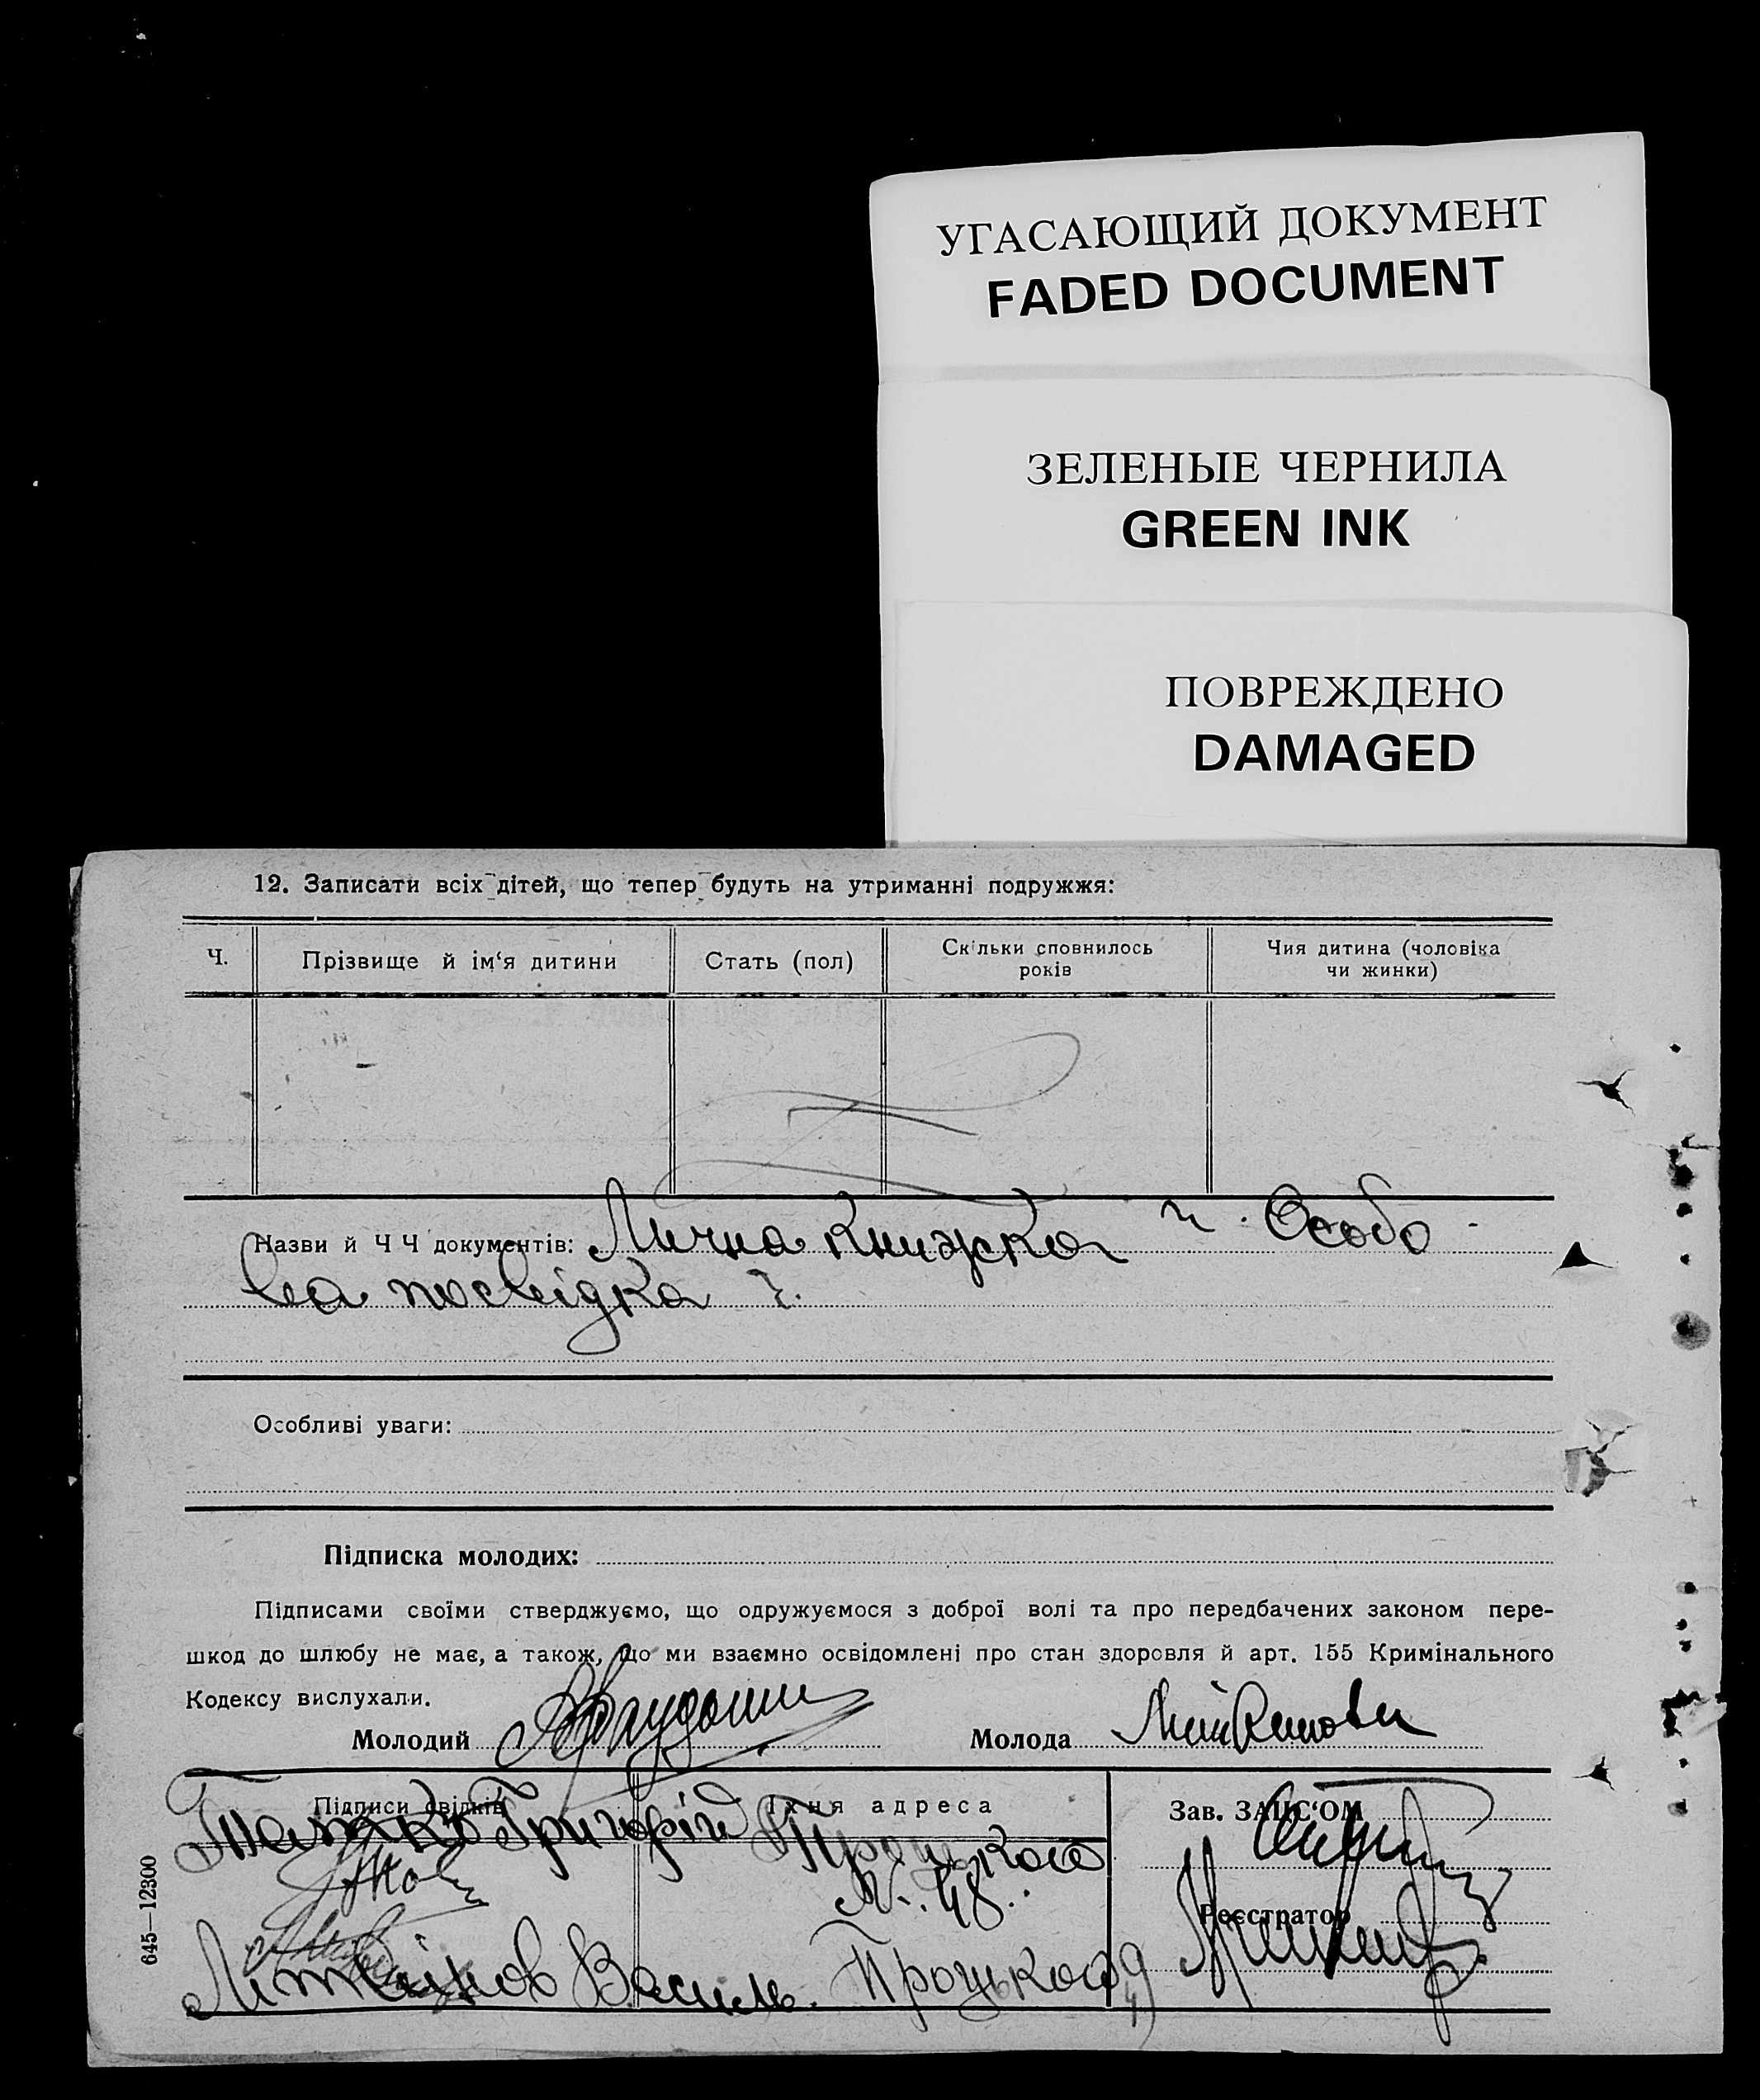 УГАСАЮЩИЙ ДОКУМЕНТ
FADED DOCUMENT
ЗЕЛЕНЫЕ ЧЕРНИЛА
GREEN INK
ПОВРЕЖДЕНО
DAMAGED
12. Записати всіх дітей, що тепер будуть на утриманні подружжя:
Ч.
Прізвище й ім‘я дитини
Стать (пол)
Скільки сповнилось
років
Чия дитина (чоловіка
чи жинки)
Назви й Ч Ч документів: Лична книжка ч. Особо
ва посвідка ч.
Особливі уваги:
Підписка молодих:
Підписами своїми стверджуємо, що одружуємося з доброї волі та про передбачених законом пере-
шкод до шлюбу не має, а також, що ми взаємно освідомлені про стан здоровля й арт. 155 Кримінального
Кодексу вислухали.
Молодий
Молода
Підписи свідків
Їхня адреса
Григорій
№ 48.
Василь.
Зав. ЗАПС‘ОМ
Реєстратор
645—12300